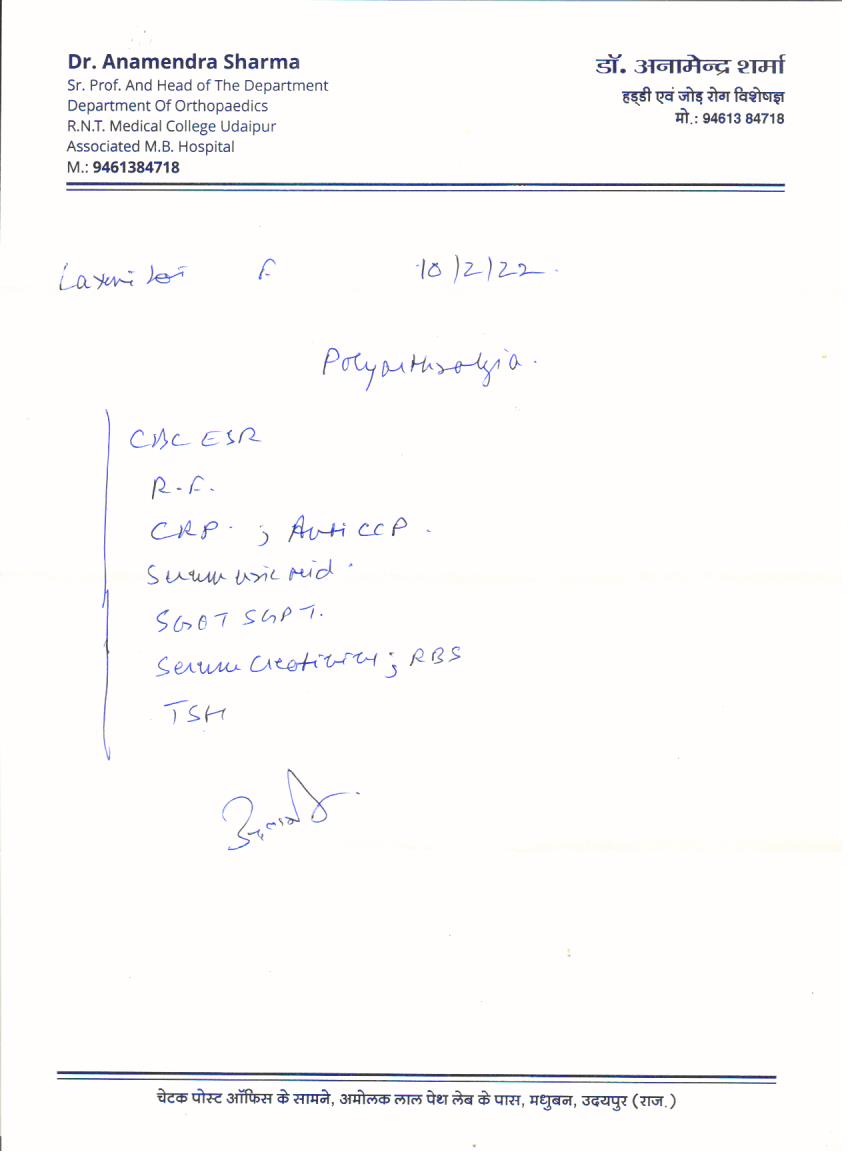 Dr. Anamendra Sharma
Sr. Prof. And Head of The Department
Department Of Orthopaedics
R.N.T. Medical College Udaipur
Associated M.B. Hospital
M.: 9461384718
डॉ. अनामेन्द्र शर्मा
हड्डी एवं जोड़ रोग विशेषज्ञ
मो.: 94613 84718
Laxmi F 10/2/22
Polyarthralgia.
CBC ESR
R.F.
CRP ; Anti CCP
Serum uric acid
SGOT SGPT.
Serum Creatinine ; RBS
TSH
चेटक पोस्ट ऑफिस के सामने, अमोलक लाल पेथ लेब के पास, मधुबन, उदयपुर (राज.)